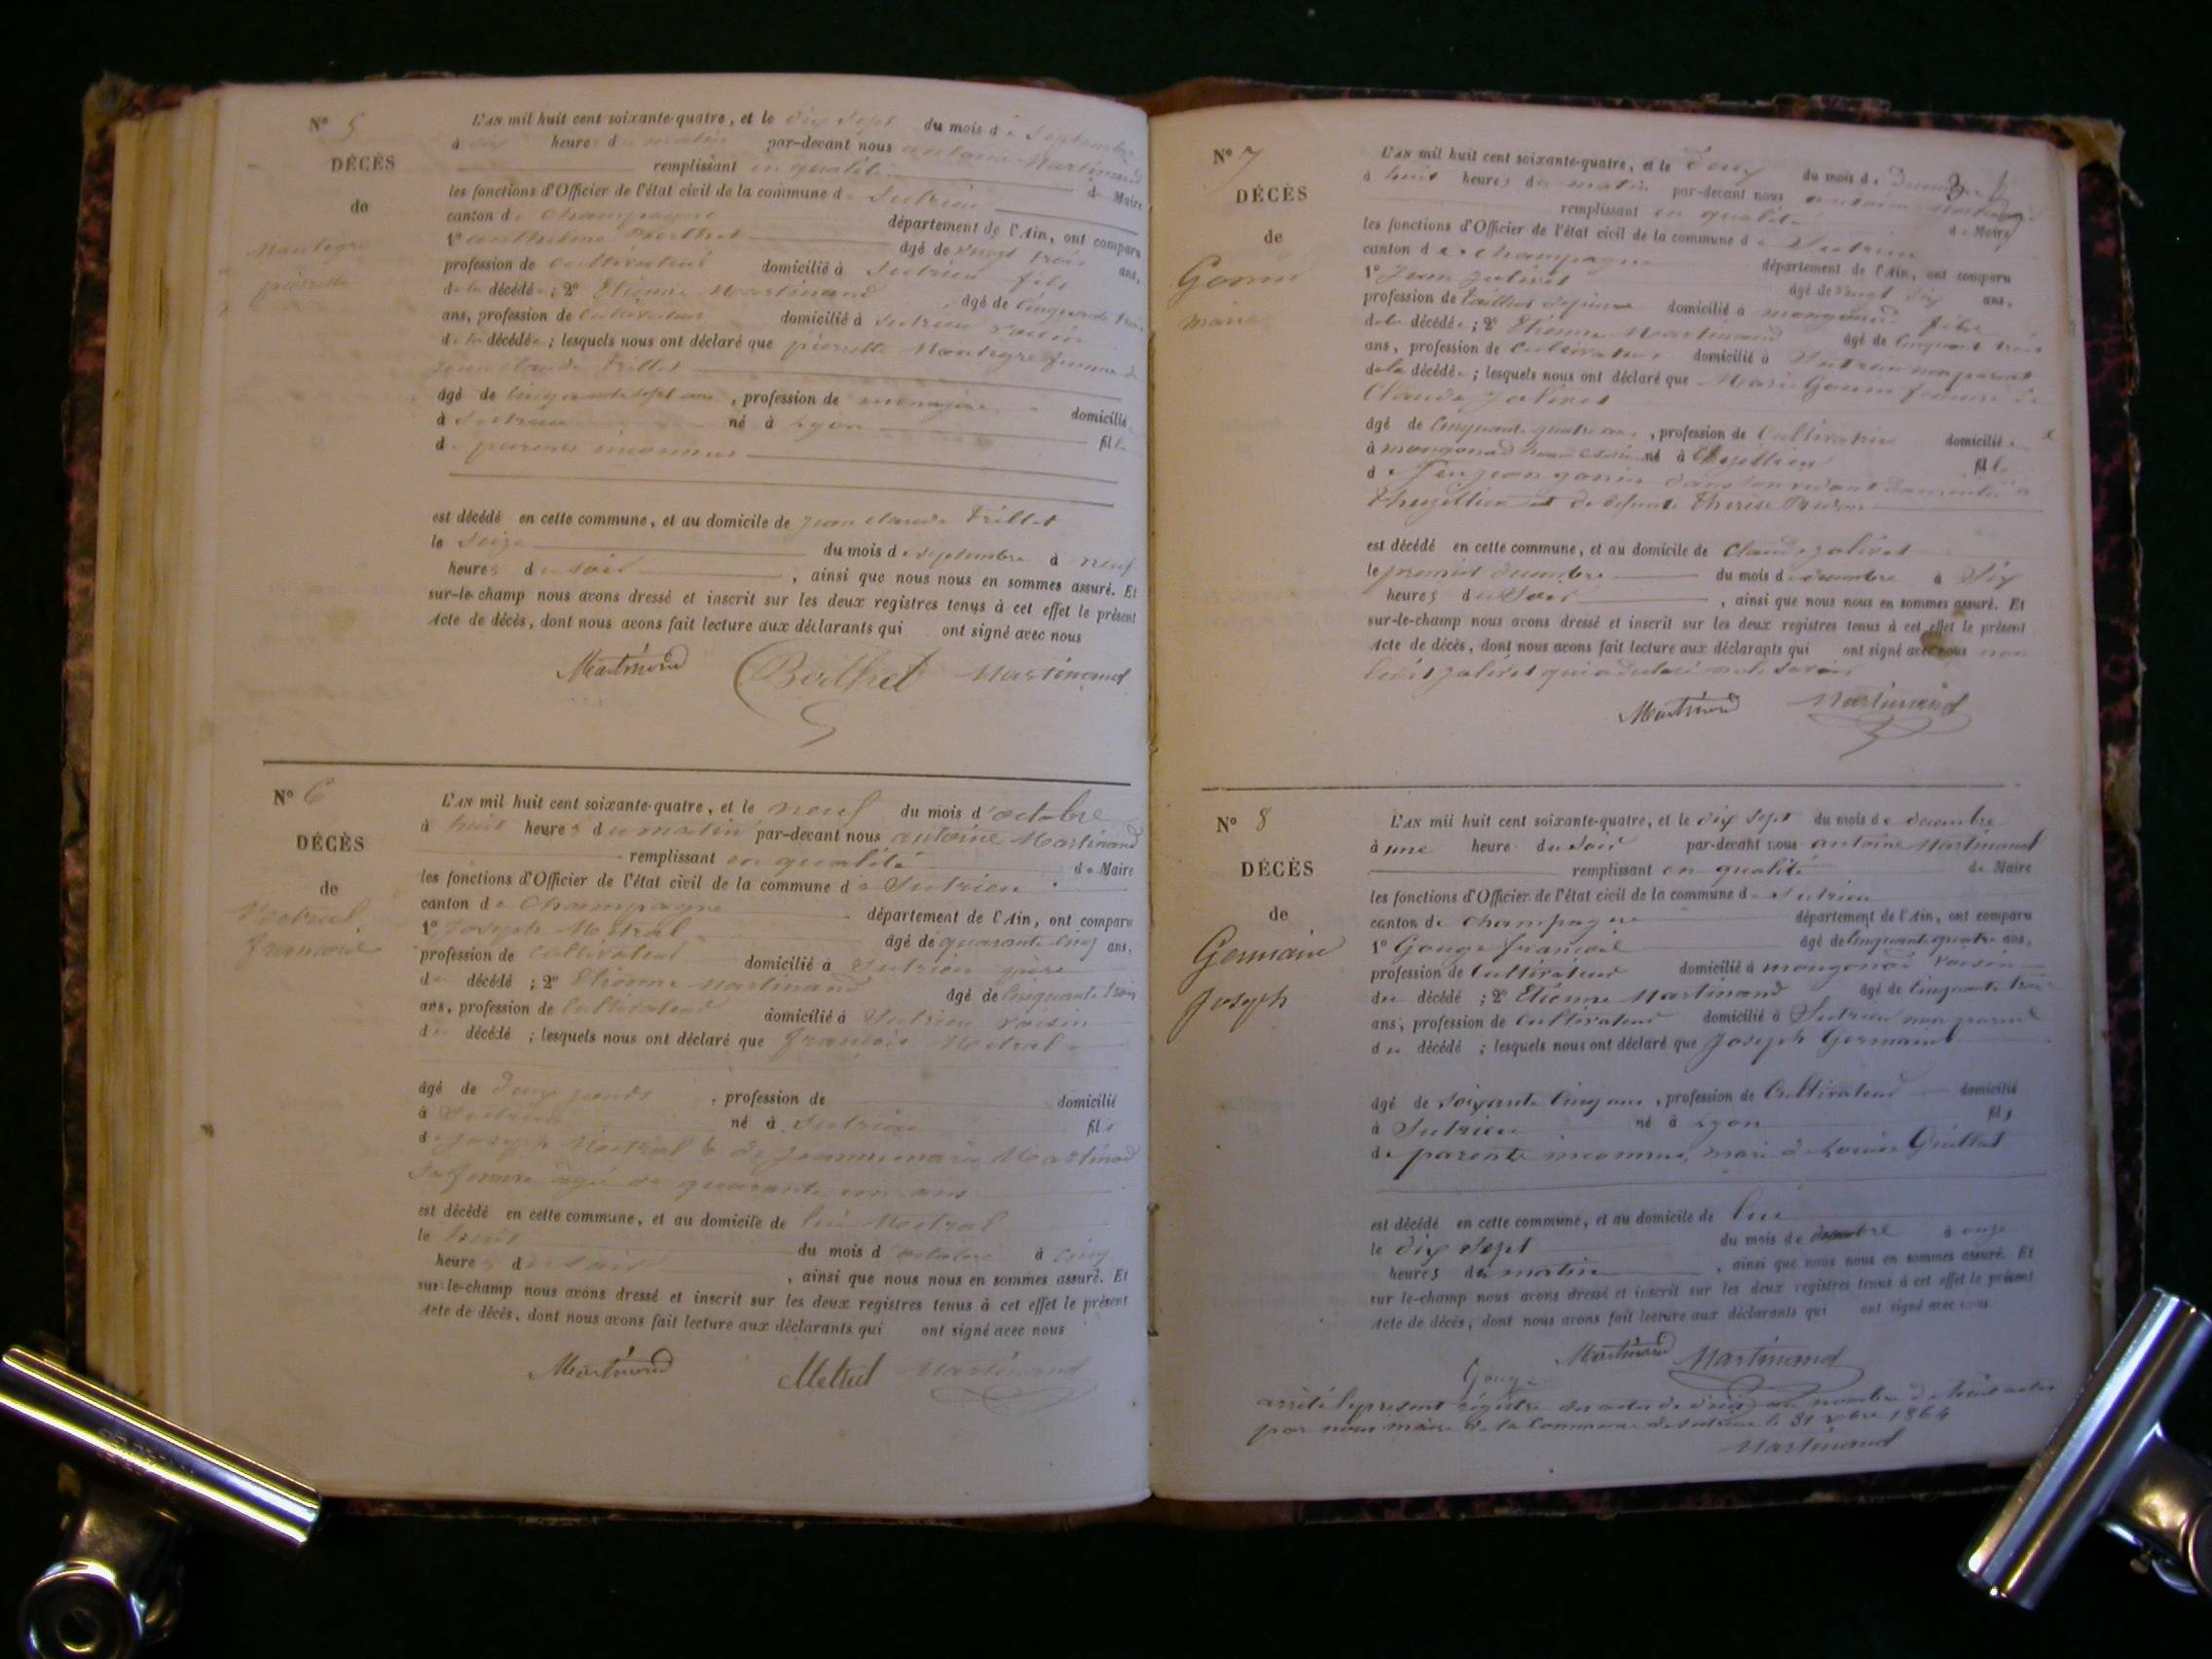 N° 5
DÉCÈS
de
Montegre
pierrette
L'AN mil huit cent soixante-quatre, et le dix sept du mois de Septembre
à dix heures du matin par-devant nous antoine Martinand
remplissant en qualité de Maire
les fonctions d'Officier de l'état civil de la commune de Sutrieu
canton de Champagne département de l'Ain, ont comparu
1° anthelme Berthet âgé de vingt trois ans,
profession de Cultivateur domicilié à Sutrieu fils
de la décédée ; 2° Etienne Martinand âgé de Cinquante trois
ans, profession de Cultivateur domicilié à Sutrieu voisin
de la décédée ; lesquels nous ont déclaré que pierrette Montegre femme de
jean claude Trillet
âgé de cinquante sept ans, profession de menagère domicilié
à Sutrieu né à Lyon fille
de parents inconnus
est décédé en cette commune, et au domicile de jean claude Trillet
le Seize du mois de septembre à neuf
heures du soir, ainsi que nous nous en sommes assuré. Et
sur-le-champ nous avons dressé et inscrit sur les deux registres tenus à cet effet le présent
Acte de décès, dont nous avons fait lecture aux déclarants qui ont signé avec nous
Martinand Berthet Martinand
N° 6
DÉCÈS
de
Mestral
francois
L'AN mil huit cent soixante-quatre, et le neuf du mois d'octobre
à huit heures du matin par-devant nous antoine Martinand
remplissant en qualité de Maire
les fonctions d'Officier de l'état civil de la commune de Sutrieu
canton de Champagne département de l'Ain, ont comparu
1° Joseph Mestral âgé de quarante cinq ans,
profession de Cultivateur domicilié à Sutrieu père
du décédé ; 2° Etienne Martinand âgé de Cinquante trois
ans, profession de Cultivateur domicilié à Sutrieu voisin
du décédé ; lesquels nous ont déclaré que françois Mestral
âgé de Deux jours, profession de domicilié
à Sutrieu né à Sutrieu fils
de joseph Mestral & de jeanne marie Martinod
Sa femme agée de quarante un ans
est décédé en cette commune, et au domicile de lui Mestral
le huit du mois d'octobre à cinq
heures du soir, ainsi que nous nous en sommes assuré. Et
sur-le-champ nous avons dressé et inscrit sur les deux registres tenus à cet effet le présent
Acte de décès, dont nous avons fait lecture aux déclarants qui ont signé avec nous
Martinand Martinand
N° 7
DÉCÈS
de
Gonin
marie
3
L'AN mil huit cent soixante-quatre, et le Deux du mois de Decembre
à huit heures du matin par-devant nous antoine Martinand
remplissant en qualité de Maire
les fonctions d'Officier de l'état civil de la commune de Sutrieu
canton de champagne département de l'Ain, ont comparu
1° Jean jolivet âgé de vingt six ans,
profession de tailleur de pierre domicilié à mongonod fils
de la décédée ; 2° Etienne Martinand âgé de Cinquante trois
ans, profession de Cultivateur domicilié à Sutrieu non parent
de la décédée ; lesquels nous ont déclaré que Marie Gonin femme de
Claude jolivet
âgé de Cinquante quatre ans, profession de Cultivatrice domicilié
à mongonod né à fille
de feu jean gonin
et de defunte Thérèse
est décédé en cette commune, et au domicile de Claude jolivet
le premier decembre du mois de decembre à Six
heures du Soir, ainsi que nous nous en sommes assuré. Et
sur-le-champ nous avons dressé et inscrit sur les deux registres tenus à cet effet le présent
Acte de décès, dont nous avons fait lecture aux déclarants qui ont signé avec nous non
ledit jolivet qui a declaré ne le savoir
Martinand Martinand
N° 8
DÉCÈS
de
Germain
Joseph
L'AN mil huit cent soixante-quatre, et le dix sept du mois de decembre
à une heure du soir par-devant nous antoine Martinand
remplissant en qualité de Maire
les fonctions d'Officier de l'état civil de la commune de Sutrieu
canton de champagne département de l'Ain, ont comparu
1° Gouge francois âgé de Cinquante quatre ans,
profession de Cultivateur domicilié à mongonod voisin
du décédé ; 2° Etienne Martinand âgé de Cinquante trois
ans, profession de Cultivateur domicilié à Sutrieu non parent
du décédé ; lesquels nous ont déclaré que Joseph Germain
âgé de Soixante Cinq ans, profession de Cultivateur domicilié
à Sutrieu né à Lyon fils
de parents inconnus, mari de Louise Guillet
est décédé en cette commune, et au domicile de lui
le dix Sept du mois de decembre à onze
heures du matin, ainsi que nous nous en sommes assuré. Et
sur-le-champ nous avons dressé et inscrit sur les deux registres tenus à cet effet le présent
Acte de décès, dont nous avons fait lecture aux déclarants qui ont signé avec nous
Martinand Martinand
Gouge
arrêté le present régistre des actes de décès au nombre de huit actes
par nous maire de la Commune de Sutrieu le 31 xbre 1864
Martinand